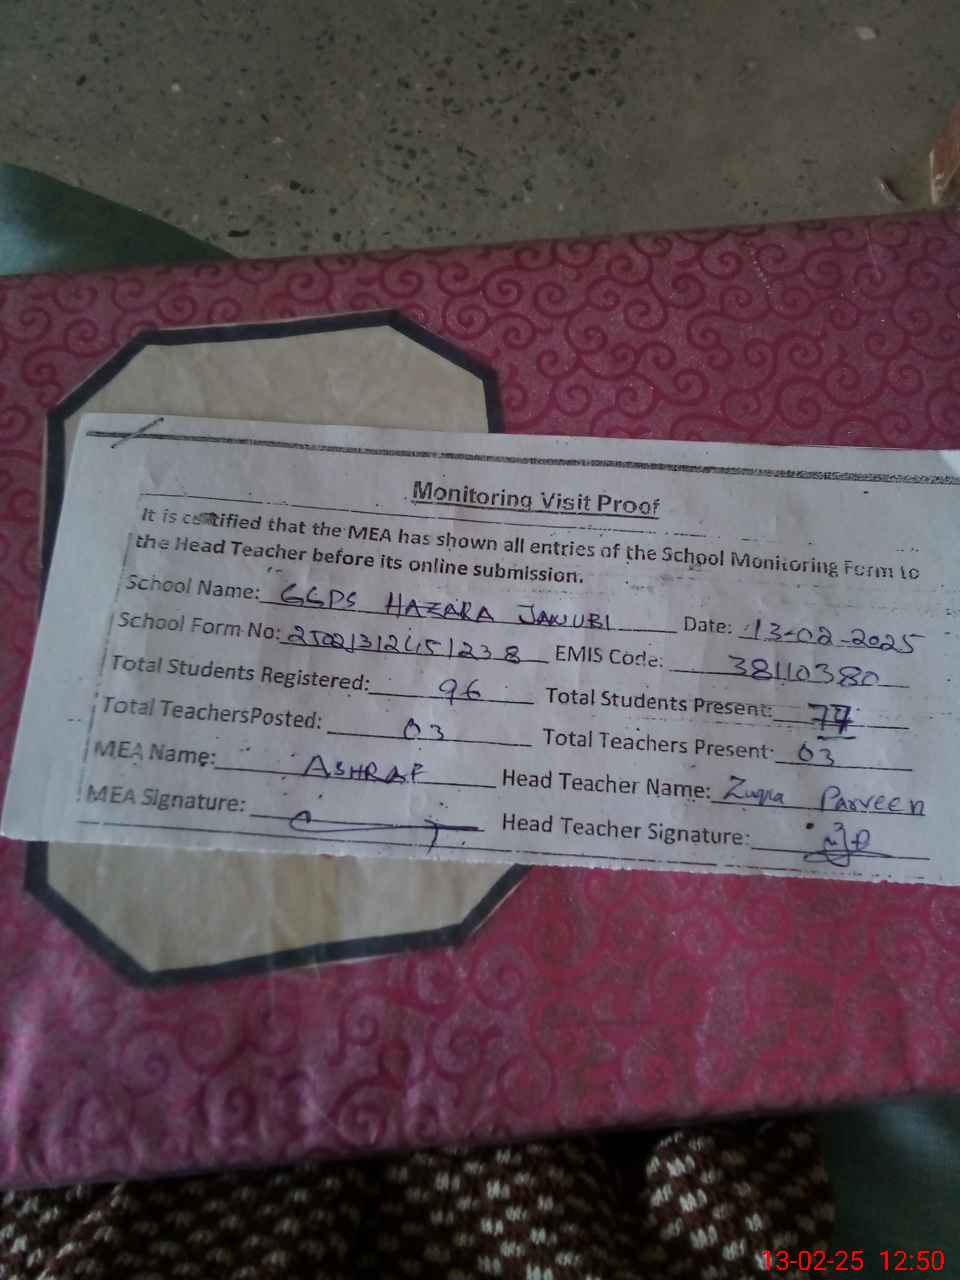 Monitoring Visit Proof
It is certified that the MEA has shown all entries of the School Monitoring Form to
the Head Teacher before its online submission.
School Name: GGPS HAZARA JANUBI Date: 13-02-2025
School Form No: EMIS Code: 38110380
Total Students Registered: 96 Total Students Present: 77
Total TeachersPosted: 03 Total Teachers Present: 03
MEA Name: ASHRAF Head Teacher Name: Parveen
MEA Signature: Head Teacher Signature:
13-02-25 12:50